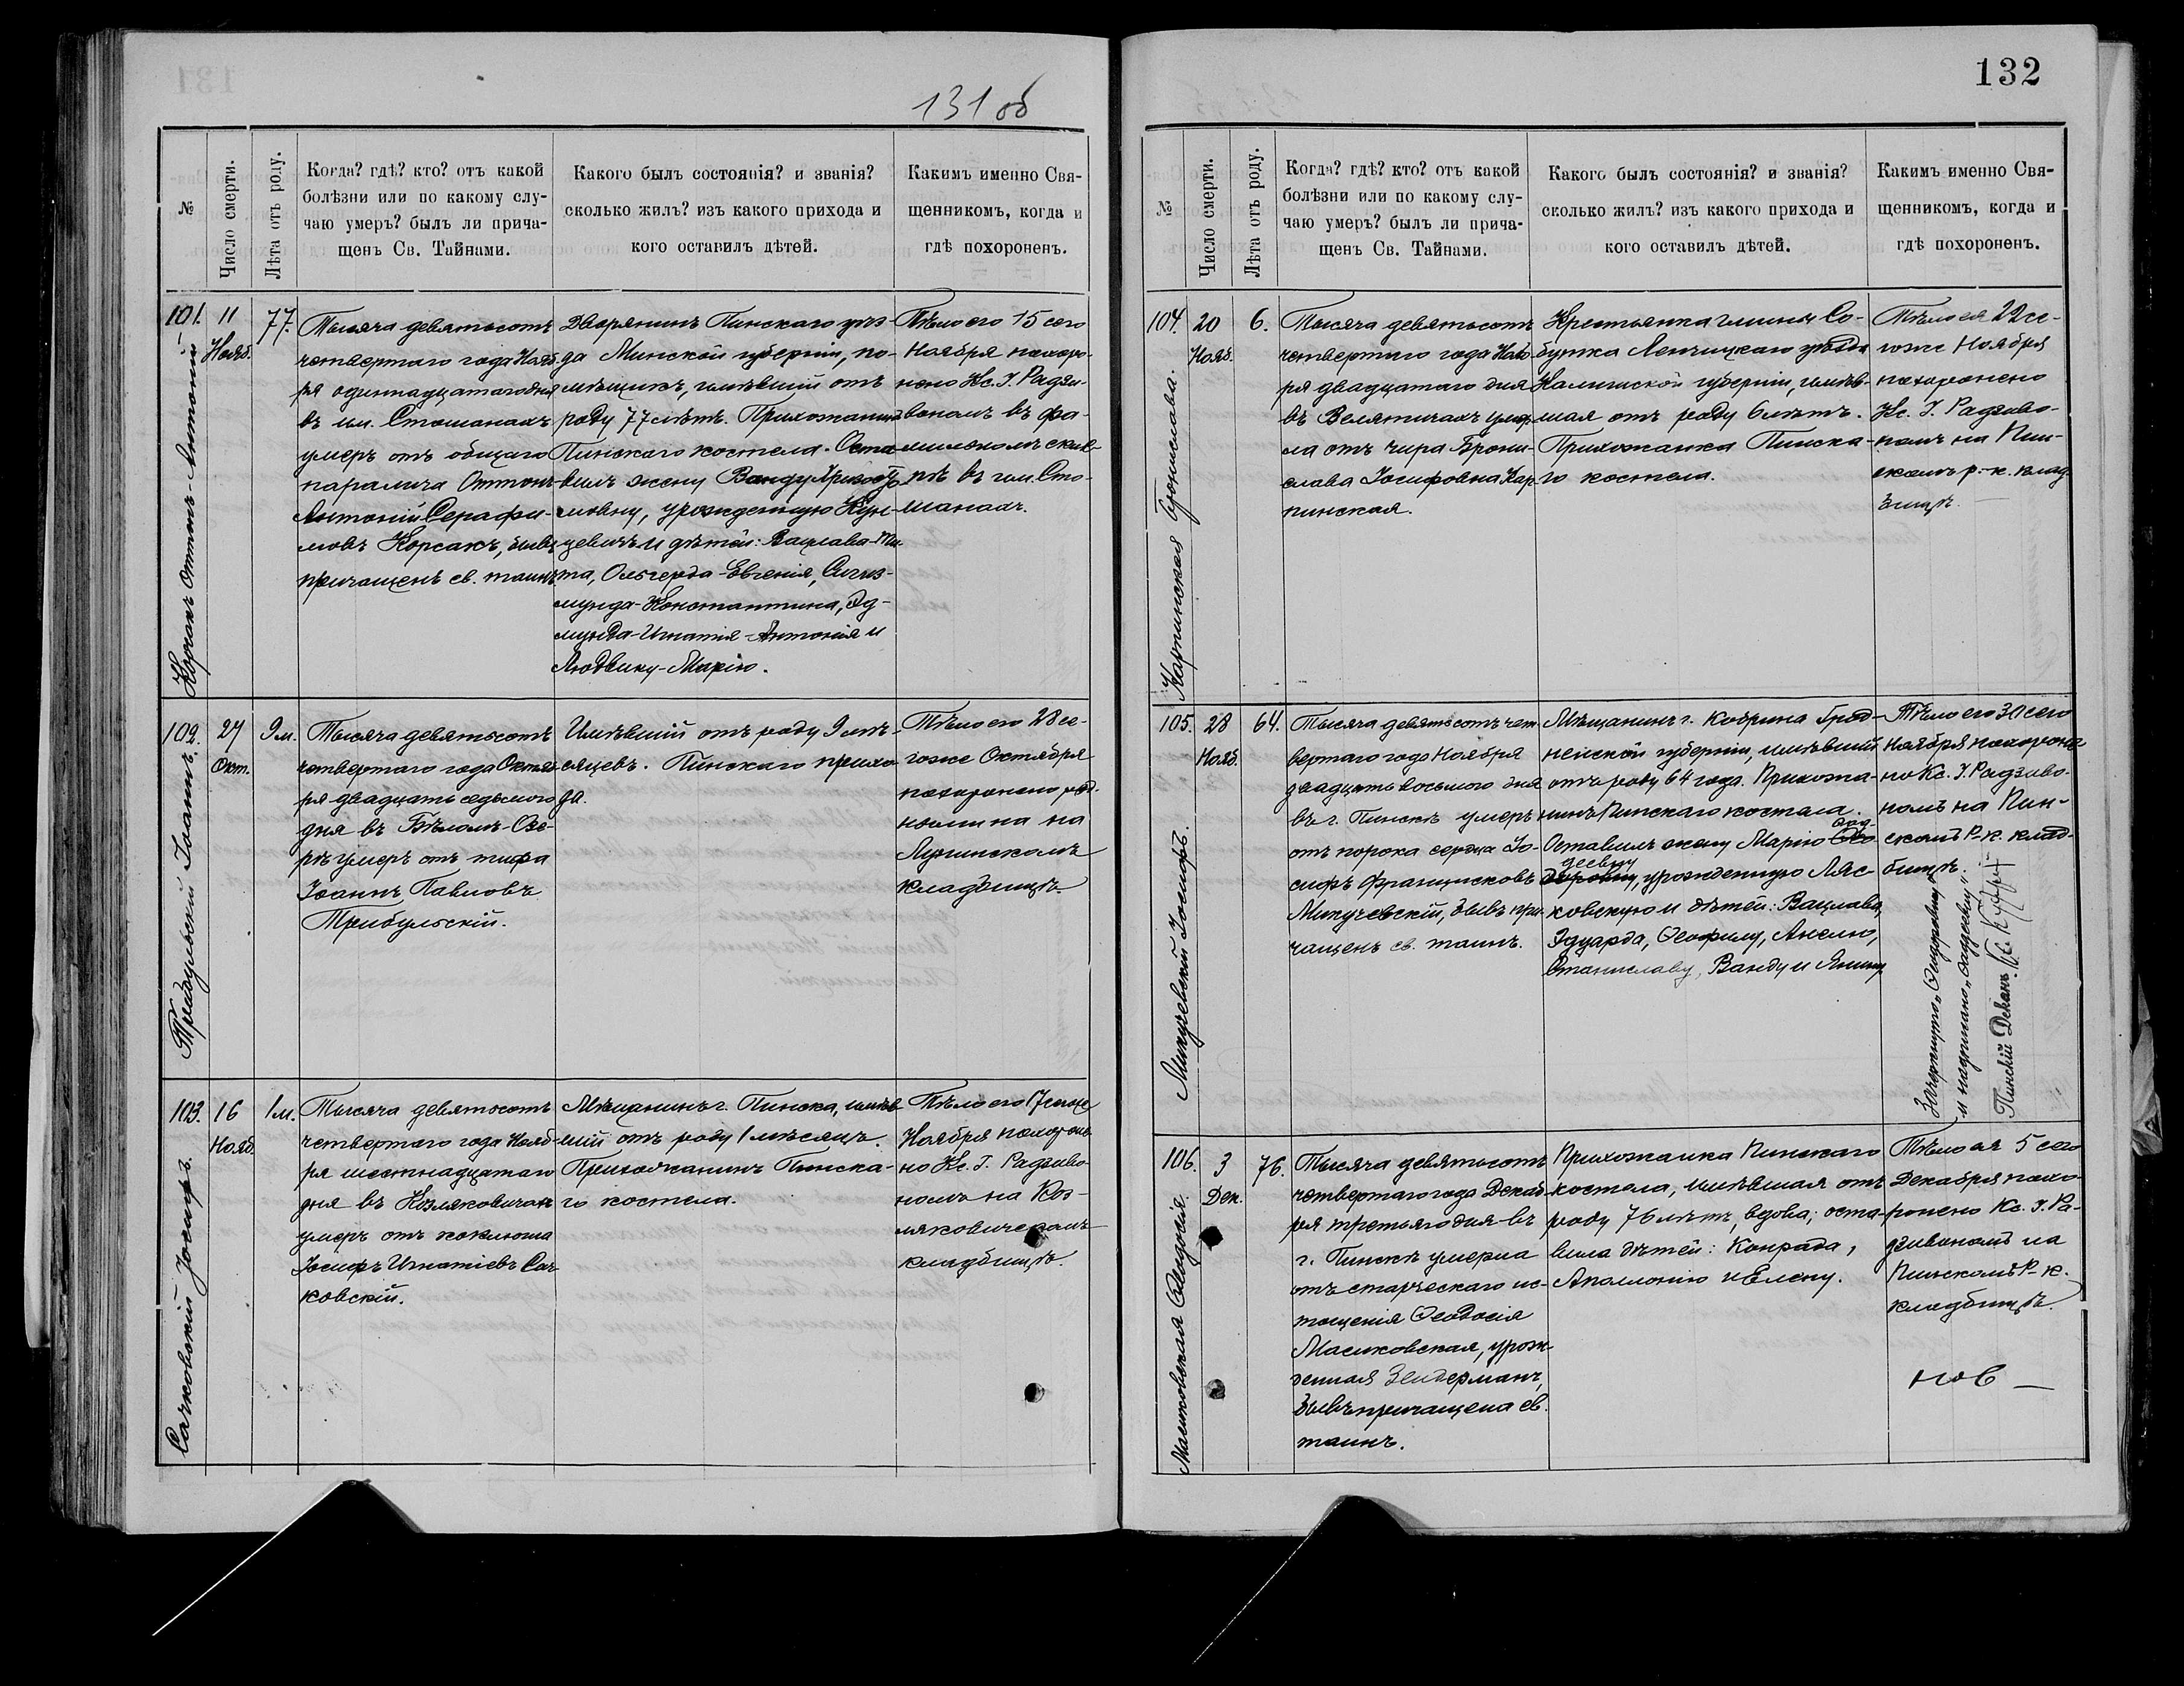 131 об
№
Число смерти.
Лѣта отъ роду.
Когда? гдѣ? кто? отъ какой
болѣзни или по какому слу-
чаю умеръ? былъ ли прича-
щенъ Св. Тайнами.
Какого былъ состоянія? и званія?
сколько жилъ? изъ какого прихода и
кого оставилъ дѣтей.
Какимъ именно Свя-
щенникомъ, когда и
гдѣ похороненъ.
101.
Корсакъ Оттонъ-Антоній
11
Нояб.
77.
Тысяча девятьсотъ
четвертаго года Нояб-
ря одиннадцатаго дня
въ им. Стошанахъ
умеръ отъ общаго
паралича Оттонъ-
Антоній Серафи-
мовъ Корсакъ, бывъ
причащенъ св. таинъ
Дворянинъ Пинскаго уѣз-
да Минской губерніи, по-
мѣщикъ, имѣвшій отъ
роду 77 лѣтъ. Прихожанинъ
Пинскаго костела. Оста-
вилъ жену Ванду
мовну, урожденную Кун-
цевичъ и дѣтей: Вацлава-Ти-
та, Ольгерда-Евгенія, Сигиз-
мунда-Константина, Эд-
мунда-Игнатія-Антонія и
Людвику-Марію.
Тѣло его 15 сего
Ноября похоро-
нено Кс. І. Радзи-
вономъ въ фа-
мильномъ скле-
пѣ въ им. Сто-
шанахъ.
102.
Трибульскій Іоаннъ.
27
Окт.
9 м.
Тысяча девятьсотъ
четвертаго года Октяб-
ря двадцать седьмого
дня въ Бѣломъ-Озе-
рѣ умеръ отъ тифа
Іоаннъ Павловъ
Трибульскій.
Имѣвшій отъ роду 9 мѣ-
сяцевъ. Пинскаго прихо-
да.
Тѣло его 28 се-
гоже Октября
похоронено род-
ными на
Лунинскомъ
кладбищѣ
103.
Сачковскій Іосифъ.
16
Нояб.
1 м.
Тысяча девятьсотъ
четвертаго года Нояб-
ря шестнадцатаго
дня въ Козляковичахъ
умеръ отъ коклюша
Іосифъ Игнатіевъ Сач-
ковскій.
Мѣщанинъ г. Пинска, имѣв-
шій отъ роду 1 мѣсяцъ.
Прихожанинъ Пинска-
го костела.
Тѣло его 17 сегоже
Ноября похороне-
но Кс. І. Радзиво-
номъ на Коз-
ляковичскомъ
кладбищѣ.
132
№
Число смерти.
Лѣта отъ роду.
Когда? гдѣ? кто? отъ какой
болѣзни или по какому слу-
чаю умеръ? былъ ли прича-
щенъ Св. Тайнами.
Какого былъ состоянія? и званія?
сколько жилъ? изъ какого прихода и
кого оставилъ дѣтей.
Какимъ именно Свя-
щенникомъ, когда и
гдѣ похороненъ.
104.
Карпинская Бронислава.
20
Нояб.
6.
Тысяча девятьсотъ
четвертаго года Нояб-
ря двадцатаго дня
въ Велятичахъ умер-
ла отъ чира Брони-
слава Іосифовна Кар-
пинская.
Крестьянка гмины Со-
бутка Ленчицкаго уѣзда
Калишской губерніи, имѣв-
шая отъ роду 6 лѣтъ.
Прихожанка Пинска-
го костела.
Тѣло ея 22 се-
гоже Ноября
похоронено
Кс. І. Радзиво-
номъ на Пин-
скомъ р.-к. клад-
бищѣ.
105.
Микучевскій Іосифъ.
28
Нояб.
64.
Тысяча девятьсотъ чет-
вертаго года Ноября
двадцать восьмого дня
въ г. Пинскѣ умеръ
отъ порока сердца Іо-
сифъ Францисковъ
Микучевскій, бывъ при-
чащенъ св. таинъ.
Мѣщанинъ г. Кобрина Грод-
ненской губерніи, имѣвшій
отъ роду 64 года. Прихожа-
нинъ Пинскаго костела.
Оставилъ жену Марію Фад-
деевну, урожденную Ляс-
ковскую и дѣтей: Вацлава,
Эдуарда, Ѳеофилу, Анелю,
Станиславу, Ванду и Янину
Тѣло его 30 сего
Ноября похороне-
но Кс. І. Радзиво-
номъ на Пин-
скомъ Р-к. клад-
бищѣ.
Зачеркнуто
и надписано „Фаддеевну“.
Пинскій Деканъ Кс.
106.
Масиковская Ѳеодосія.
3
Дек.
76.
Тысяча девятьсотъ
четвертаго года Декаб-
ря третьяго дня въ
г. Пинскѣ умерла
отъ старческаго ис-
тощенія Ѳеодосія
Масиковская, урож-
денная Зейдерманъ,
бывъ причащена св.
таинъ.
Прихожанка Пинскаго
костела, имѣвшая отъ
роду 76 лѣтъ, вдова; оста-
вила дѣтей: Конрада,
Аполлонію и Елену.
Тѣло ея 5 сего
Декабря похо-
ронено Кс. І. Ра-
дзивономъ на
Пинскомъ Р-к.
кладбищѣ.